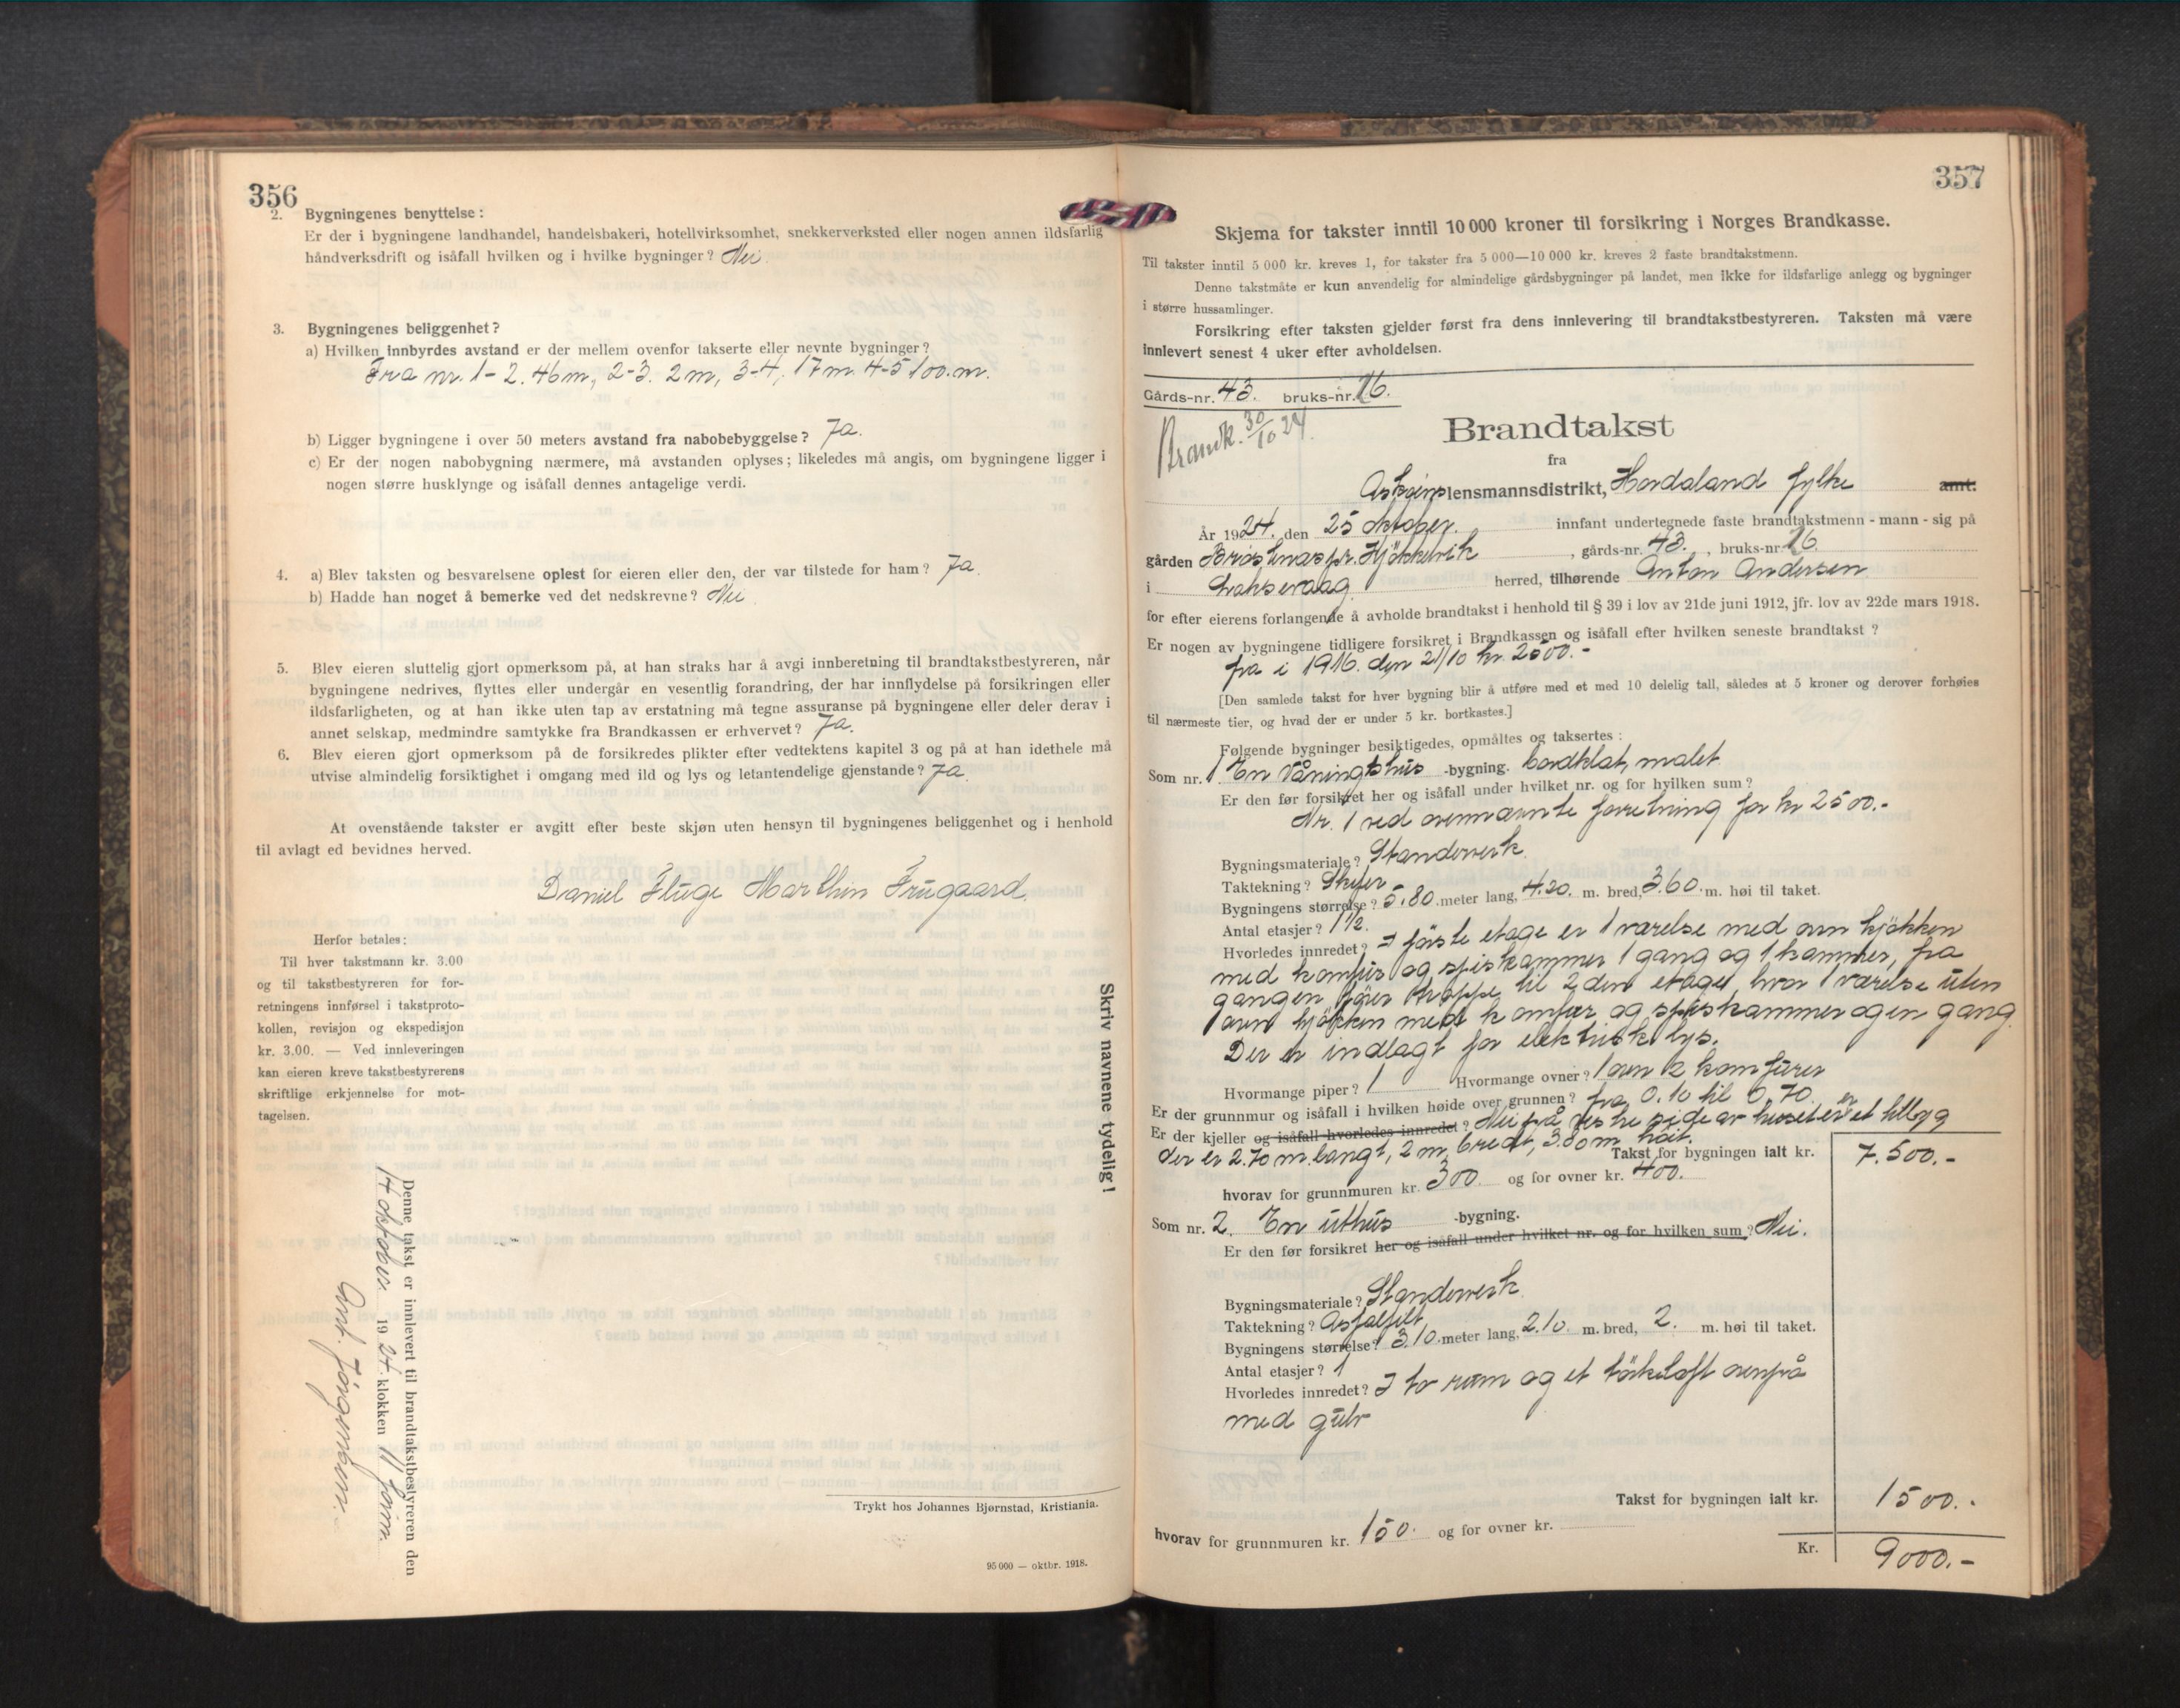 356
2. Bygningenes benyttelse:
Er der i bygningene landhandel, handelsbakeri, hotellvirksomhet, snekkerverksted eller nogen annen ildsfarlig
håndverksdrift og isåfall hvilken og i hvilke bygninger? Nei.
3. Bygningenes beliggenhet?
a) Hvilken innbyrdes avstand er der mellem ovenfor takserte eller nevnte bygninger?
Fra nr. 1-2. 46m, 2-3. 2m, 3-4, 17m 4-5 100.m.
b) Ligger bygningene i over 50 meters avstand fra nabobebyggelse? Ja.
c) Er der nogen nabobygning nærmere, må avstanden oplyses; likeledes må angis, om bygningene ligger i
nogen større husklynge og isåfall dennes antagelige verdi.
4. a) Blev taksten og besvarelsene oplest for eieren eller den, der var tilstede for ham? Ja.
b) Hadde han noget å bemerke ved det nedskrevne? Nei
5. Blev eieren sluttelig gjort opmerksom på, at han straks har å avgi innberetning til brandtakstbestyreren, når
bygningene nedrives, flyttes eller undergår en vesentlig forandring, der har innflydelse på forsikringen eller
ildsfarligheten, og at han ikke uten tap av erstatning må tegne assuranse på bygningene eller deler derav i
annet selskap, medmindre samtykke fra Brandkassen er erhvervet? Ja.
6. Blev eieren gjort opmerksom på de forsikredes plikter efter vedtektens kapitel 3 og på at han idethele må
utvise almindelig forsiktighet i omgang med ild og lys og letantendelige gjenstande? Ja.
At ovenstående takster er avgitt efter beste skjøn uten hensyn til bygningenes beliggenhet og i henhold
til avlagt ed bevidnes herved.
Daniel Fluge Marthin Frugaard.
Herfor betales:
Til hver takstmann kr. 3.00
og til takstbestyreren for for-
retningens innførsel i takstproto-
kollen, revisjon og ekspedisjon
kr. 3.00. — Ved innleveringen
kan eieren kreve takstbestyrerens
skriftlige erkjennelse for mot-
tagelsen.
Skriv navnene tydelig!
Denne takst er innlevert til brandtakstbestyreren den
14 oktober 1924. klokken 11 form.
Jørgensen
Trykt hos Johannes Bjørnstad, Kristiania.
95 000 — oktbr. 1918.
357
Skjema for takster inntil 10 000 kroner til forsikring i Norges Brandkasse.
Til takster inntil 5 000 kr. kreves 1, for takster fra 5 000—10 000 kr. kreves 2 faste brandtakstmenn.
Denne takstmåte er kun anvendelig for almindelige gårdsbygninger på landet, men ikke for ildsfarlige anlegg og bygninger
i større hussamlinger.
Forsikring efter taksten gjelder først fra dens innlevering til brandtakstbestyreren. Taksten må være
innlevert senest 4 uker efter avholdelsen.
Gårds-nr. 43. bruks-nr. 16.
Brandk. 30/10 24
Brandtakst
fra
Askøens lensmannsdistrikt, Hordaland fylke amt.
År 1924. den 25 oktober. innfant undertegnede faste brandtakstmenn - mann - sig på
gården Hjökkelvik, gårds-nr. 43., bruks-nr. 16.
i Laksevaag herred, tilhørende Anton Andersen
for efter eierens forlangende å avholde brandtakst i henhold til § 39 i lov av 21de juni 1912, jfr. lov av 22de mars 1918.
Er nogen av bygningene tidligere forsikret i Brandkassen og isåfall efter hvilken seneste brandtakst?
fra i 1916. den 21/10 kr. 2500.-
[Den samlede takst for hver bygning blir å utføre med et med 10 delelig tall, således at 5 kroner og derover forhøies
til nærmeste tier, og hvad der er under 5 kr. bortkastes.]
Følgende bygninger besiktigedes, opmåltes og taksertes:
Som nr. 1 En Våningshus -bygning. bordklæt, malet
Er den før forsikret her og isåfall under hvilket nr. og for hvilken sum?
Nr. 1 ved ovennævnte forretning for kr 2500.-
Bygningsmateriale? Standerverk.
Taktekning? Skifer
Bygningens størrelse? 5.80 meter lang, 4.20. m. bred, 3.60. m. høi til taket.
Antal etasjer? 1½.
Hvorledes innredet? I förste etage er 1 værelse med ovn kjökken
med komfur og spiskammer 1 gang og 1 kammer, fra
gangen förer trappe til 2den etage, hvor 1 værelse uten
ovn kjökken med komfur og spiskammer og en gang.
Der er indlagt for elektrisk lys.
Hvormange piper? 1 Hvormange ovner? 1 ovn 2 komfurer
Er der grunnmur og isåfall i hvilken høide over grunnen? fra 0.10 til 0.70.
Er der kjeller og isåfall hvorledes innredet? Nei på vestre side av huset er et tilbyg
der er 2.70 m. langt, 2 m, bredt, 3.80 m. höit.
Takst for bygningen ialt kr. 7.500.-
hvorav for grunnmuren kr. 300 og for ovner kr. 400.
Som nr. 2. En uthus -bygning.
Er den før forsikret her og isåfall under hvilket nr. og for hvilken sum? Nei.
Bygningsmateriale? Standerverk
Taktekning? Asfalfilt
Bygningens størrelse? 3.10. meter lang, 2.10. m. bred, 2. m. høi til taket.
Antal etasjer? 1
Hvorledes innredet? I to rum og et törkeloft ovenpå
med gulv
Takst for bygningen ialt kr. 1500.-
hvorav for grunnmuren kr. 150. og for ovner kr.
Kr. 9000.-